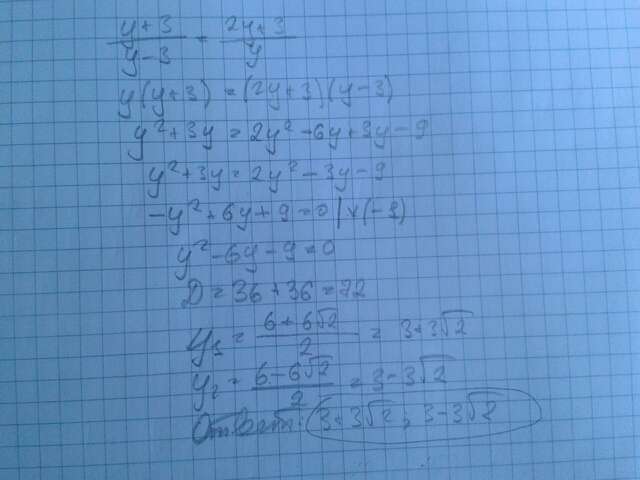 y+3/y-3 = 2y+3/y
y(y+3) = (2y+3)(y-3)
y²+3y = 2y²-6y+3y-9
y²+3y = 2y²-3y-9
-y²+6y+9=0 | ×(-1)
y²-6y-9=0
D=36+36=72
y₁ = 6+6√2/2 = 3+3√2
y₂ = 6-6√2/2 = 3-3√2
Ответ: 3+3√2; 3-3√2